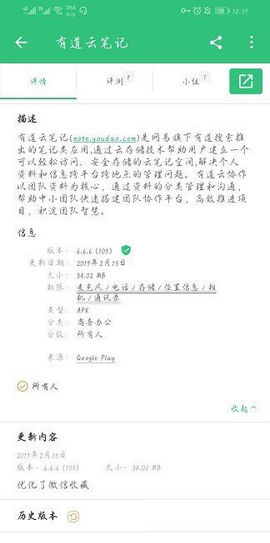 10:37
有道云笔记
详情
评测
小组
描述
有道云笔记(note.youdao.com)是网易旗下有道搜索推
出的笔记类应用,通过云存储技术帮助用户建立一个
可以轻松访问、安全存储的云笔记空间,解决个人
资料和信息跨平台跨地点的管理问题。有道云协作
以团队资料为核心,通过资料的分类管理和沟通,
帮助中小团队快速搭建团队协作平台,高效推进项
目,积淀团队智慧。
信息
版本: 6.6.6 (105)
更新日期: 2019年2月15日
大小: 34.02 MB
权限: 麦克风 / 电话 / 存储 / 位置信息 / 相
机 / 通讯录
类型: APK
分类: 商务办公
分级: 所有人
来源: Google Play
所有人
收起
更新内容
2019年2月15日
版本: 6.6.6 (105) 大小: 34.02 MB
优化了微信收藏
历史版本